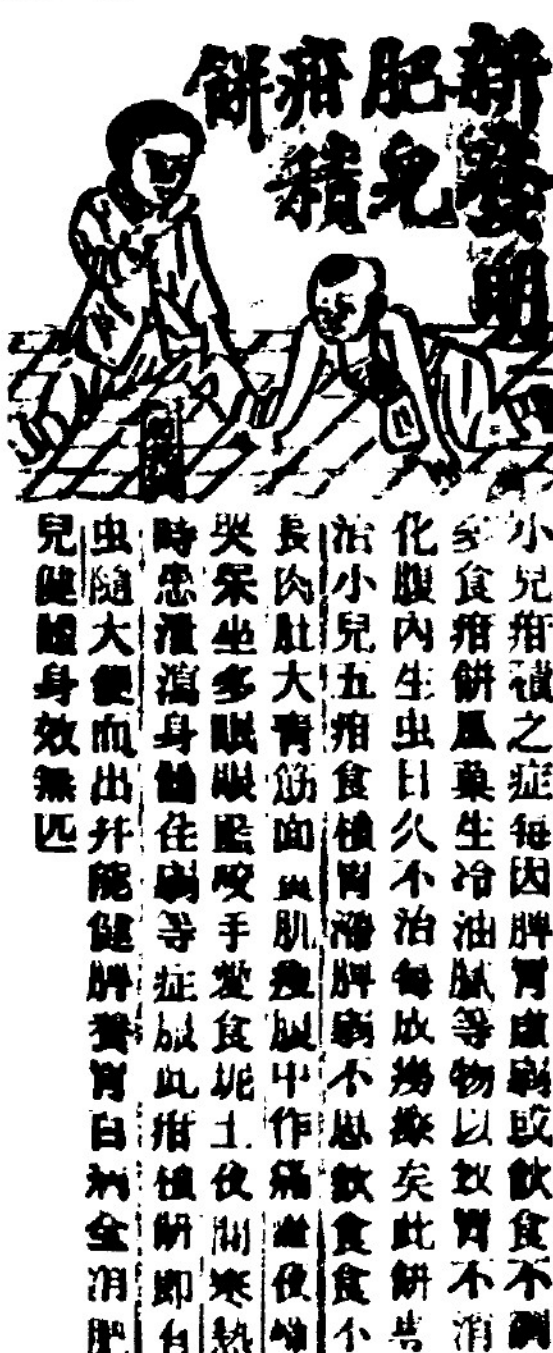 新發明
肥兒
疳積
餅
小兒疳積之症每因脾胃虛弱或飲食不調
多食疳餅風菓生冷油膩等物以致胃不消
化腹內生虫日久不治每成癆瘵矣此餅善
治小兒五疳食積胃滯脾弱不思飲食食不
長肉肚大青筋面黃肌瘦腹中作痛
哭呆坐多眼眼 咬手愛食坭土夜間寒熱
時患 瀉身 等症服此疳積餅即有
虫隨大便而出并能健脾養胃百病全消肥
兒健體身效無匹